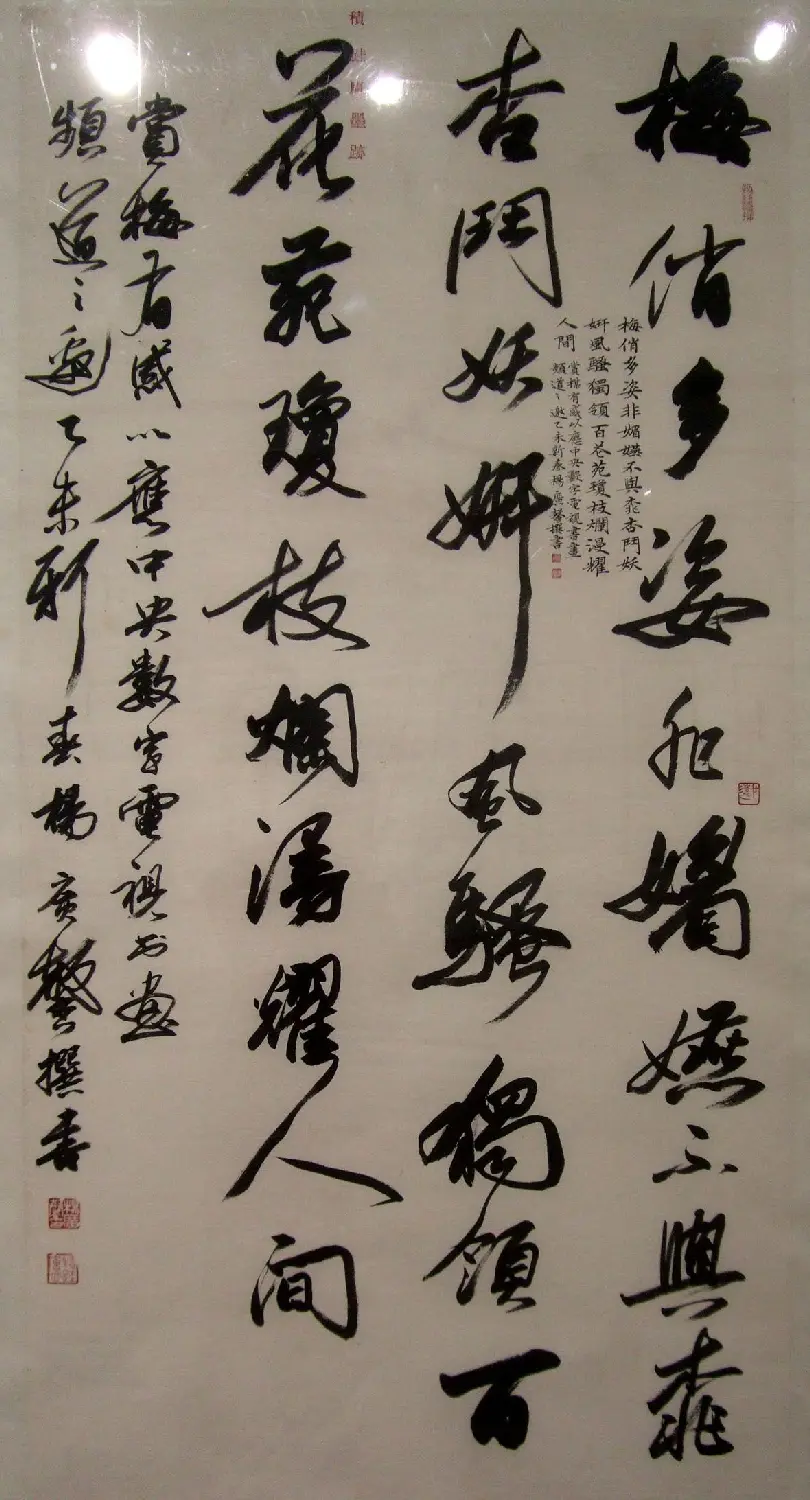 梅俏多姿非媚嬿不與桃
杏鬥妖妍風騷獨領百
花苑瓊枝爛漫耀人間
賞梅有感以應中央數字電視书畫
頻道之邀乙未新春楊廣馨撰書
梅俏多姿非媚嬿不與桃杏鬥妖
妍風騷獨領百花苑瓊枝爛漫耀
人間
賞梅有感以應中央數字電視書畫
頻道之邀乙未新春楊廣馨撰書